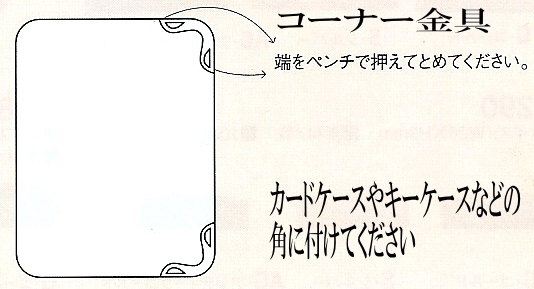 コーナー金具
端をペンチで押えてとめてください。
カードケースやキーケースなどの
角に付けてください